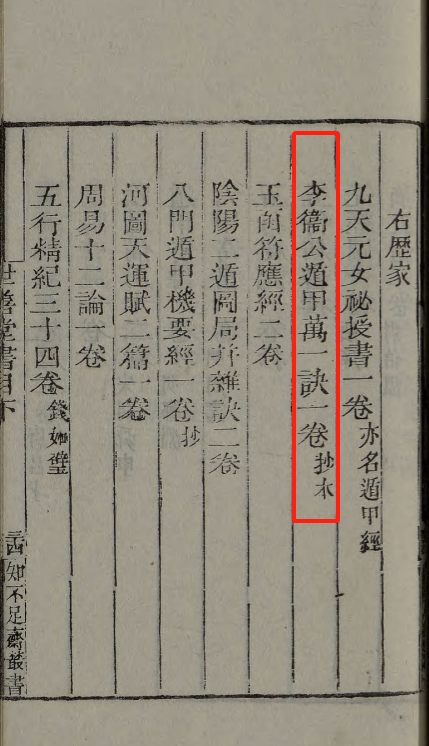 右歷家
九天元女祕授書一卷亦名遁甲經
李衞公遁甲萬一訣一卷抄本
玉函符應經二卷
陰陽二遁圖局并雜訣二卷
八門遁甲機要經一卷抄
河圖天運賦二篇一卷
周易十二論一卷
五行精紀三十四卷錢如璧
世善堂書目下
知不足齋叢書